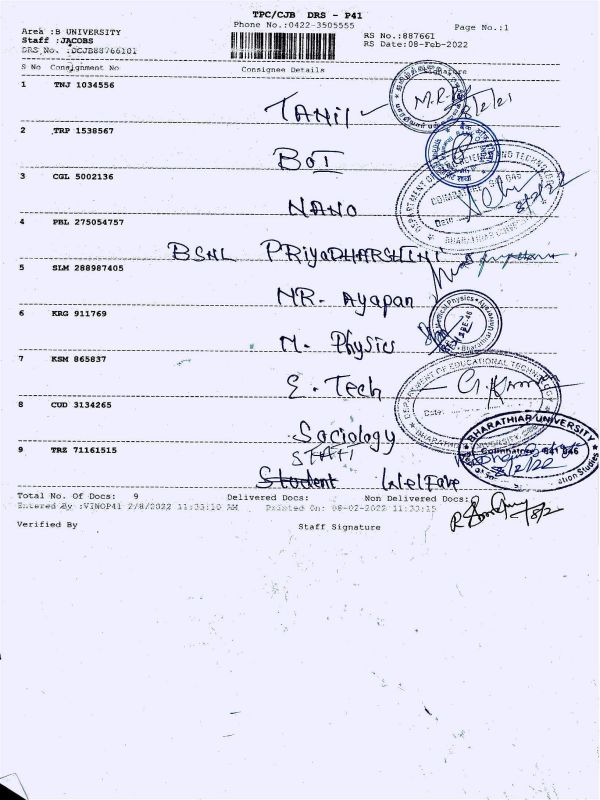 TPC/CJB DRS - P41
Phone No.:0422-3505555
Page No.:1
Area :B UNIVERSITY
Staff :JACOBS
DRS No. :DCJB88766101
RS No.:887661
RS Date:08-Feb-2022
S No Consignment No Consignee Details Signature
1 TNJ 1034556
TAMIL M.R. 8/2/21
2 TRP 1538567
BOI
3 CGL 5002136
NANO 8/2/22
4 PBL 275054757
BSNL PRIYADHARSHINI
5 SLM 288987405
MR. Ayapan
6 KRG 911769
M. Physics
7 KSM 865837
E. Tech
DEPARTMENT OF EDUCATIONAL TECHNOLOGY
Date:
8 CUD 3134265
Sociology
BHARATHIAR UNIVERSITY
Coimbatore 641 046
9 TRZ 71161515
STAFF
Student Welfare 8/2/22
Total No. Of Docs: 9 Delivered Docs: Non Delivered Docs:
Entered By :VINOP41 2/8/2022 11:33:10 AM Printed On: 08-02-2022 11:33:15
Verified By Staff Signature